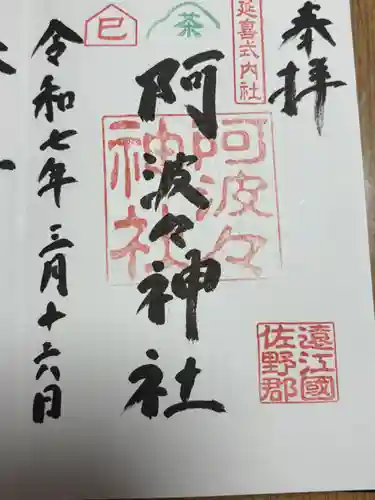 奉拝
延喜式内社
阿波々神社
阿波々
神社
茶
遠江國
佐野郡
巳
令和七年三月十六日